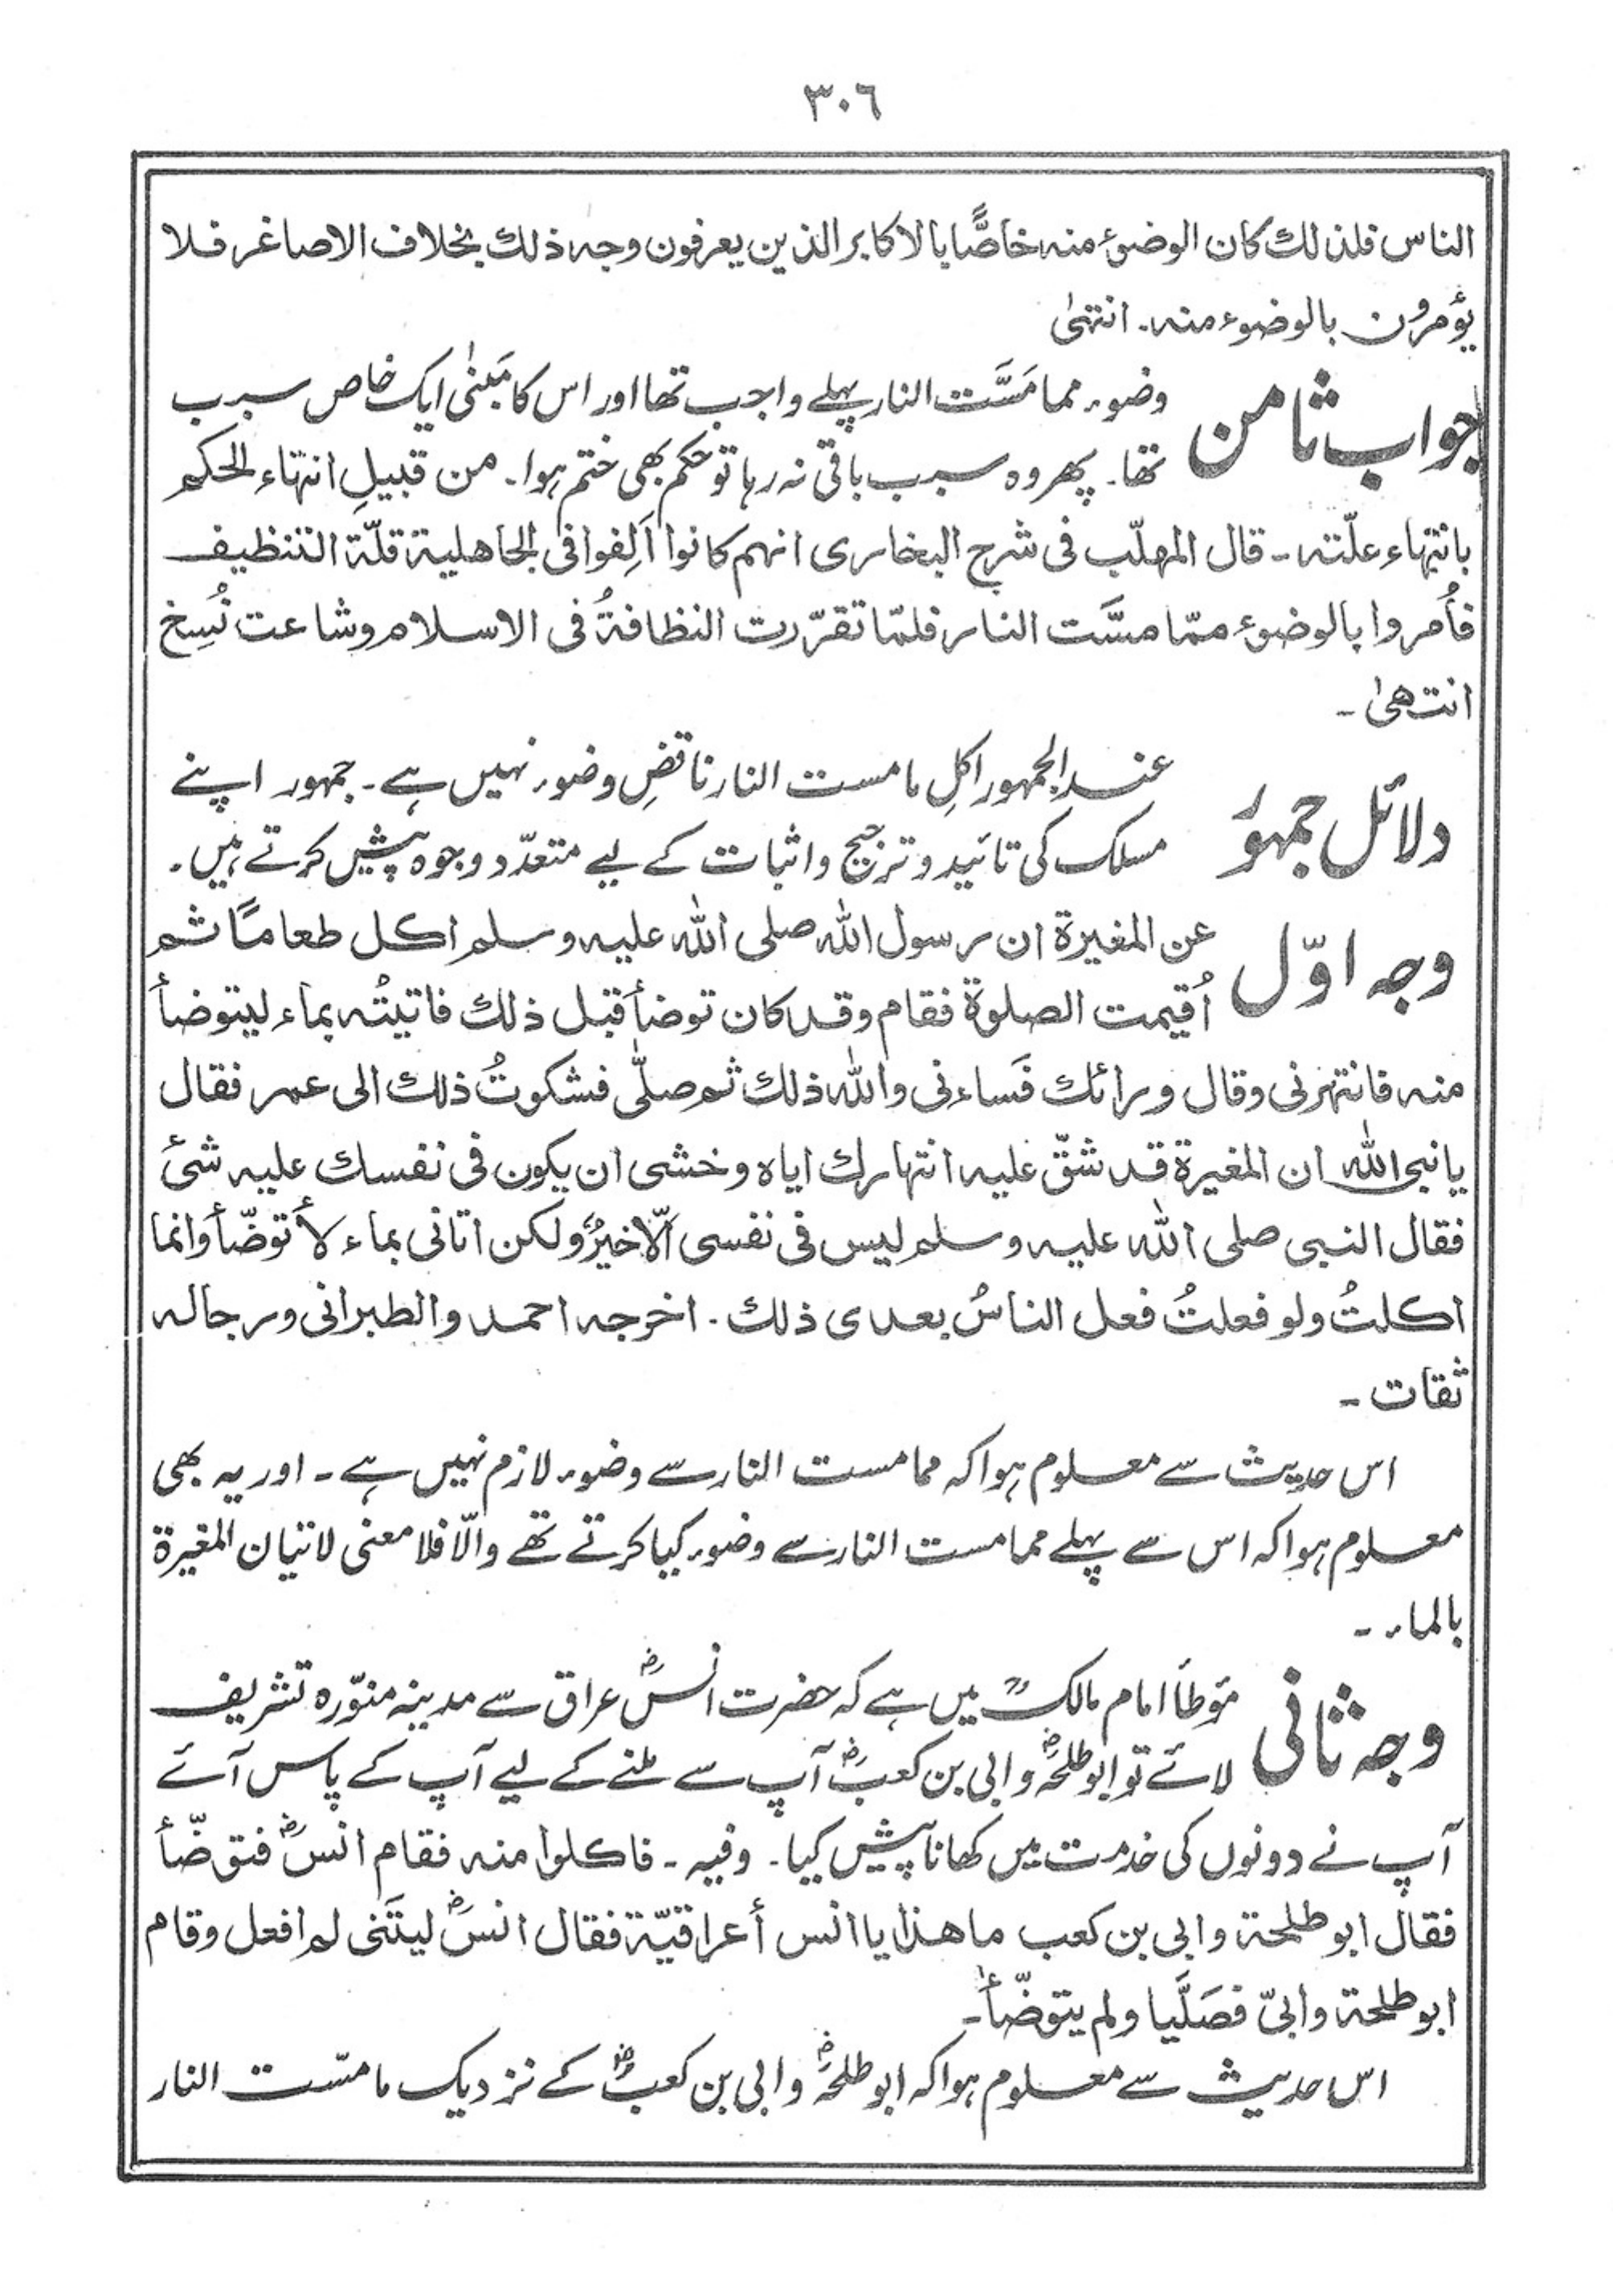 ٣٠٦
الناس فلذلك كان الوضوء منه خاصًّا بالاكابر الذين يعرفون وجه ذلك بخلاف الاصاغر فلا
يؤمرون بالوضوء منه. انتهىٰ
جواب ثامن
وضوء مما مَسَّت النار پہلے واجب تھا اور اس کا مَبنیٰ ایک خاص سبب
تھا۔ پھر وہ سبب باقی نہ رہا تو حکم بھی ختم ہوا۔ من قبیلِ انتهاء الحکم
بانتهاء علّته ۔ قال المهلّب فی شرح البخاری انهم کانوا اَلِفوا فی الجاهلیة قلّة التنظیف
فأُمروا بالوضوء ممّا مسَّت النار فلمّا تقرّرت النظافةُ فی الاسلام وشاعت نُسِخ
انتهیٰ ۔
دلائل جمہور
عند الجمہور اکلِ ما مست النار ناقضِ وضوء نہیں ہے۔ جمہور اپنے
مسلک کی تائید و ترجیح و اثبات کے لیے متعدّد وجوہ پیش کرتے ہیں۔
وجہ اوّل
عن المغیرة ان رسول الله صلی الله علیه وسلم اکل طعامًا ثم
اُقیمت الصلوٰة فقام وقد کان توضأ قبل ذلك فاتیتُه بماء لیتوضأ
منه فانتهرنی وقال ورائك فَساءنی والله ذلك ثم صلّی فشکوتُ ذلك الی عمر فقال
یا نبی الله ان المغیرة قد شقّ علیه انتهارك ایاه وخشی ان یکون فی نفسك علیه شیٔ
فقال النبی صلی الله علیه وسلم لیس فی نفسی الّا خیرٌ ولکن اتانی بماء لأتوضّأ وانما
اکلتُ ولو فعلتُ فعل الناسُ بعدی ذلك ۔ اخرجه احمد والطبرانی ورجاله
ثقات ۔
اس حدیث سے معلوم ہوا کہ مما مست النار سے وضوء لازم نہیں ہے ۔ اور یہ بھی
معلوم ہوا کہ اس سے پہلے مما مست النار سے وضوء کیا کرتے تھے والّا فلا معنی لاتیان المغیرة
بالماء ۔
وجہ ثانی
مؤطأ امام مالکؒ میں ہے کہ حضرت انسؓ عراق سے مدینہ منوّرہ تشریف
لائے تو ابوطلحہؓ و ابی بن کعبؓ آپ سے ملنے کے لیے آپ کے پاس آئے
آپ نے دونوں کی خدمت میں کھانا پیش کیا۔ وفیہ ۔ فاکلوا منه فقام انسؓ فتوضّأ
فقال ابوطلحة وابی بن کعب ما هذا یا انس أعراقیّة فقال انسؓ لیتَنی لم افعل وقام
ابوطلحة وابیّ فصَلَّیا ولم یتوضّأ۔
اس حدیث سے معلوم ہوا کہ ابوطلحہؓ و ابی بن کعبؓ کے نزدیک ما مسّت النار